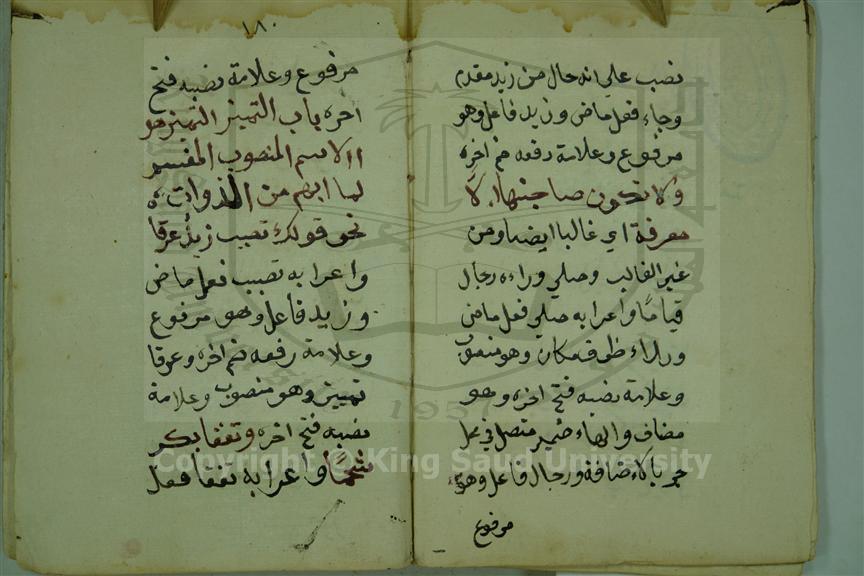 نصب على انه حال من زيد مقدم
وجاء فعل ماض وزيد فاعل وهو
مرفوع وعلامة رفعه ضم اخره
ولا تكون صاحبها الا
معرفة اي غالبا ايضا ومن
غير الغالب وصلي وراءه رجال
قياما واعرابه صلي فعل ماض
وراء ظرف مكان وهو منصوب
وعلامة نصبه فتح اخره وهو
مضاف والهاء ضمير متصل في محل
جر بالاضافة ورجال فاعل وهو
مرفوع
١٨٠
مرفوع وعلامة نصبه فتح
اخره باب التميز التميز هو
الاسم المنصوب المفسر
لما انبهم من الذوات
نحو قولك تصبب زيد عرقا
واعرابه تصبب فعل ماض
وزيد فاعل وهو مرفوع
وعلامة رفعه ضم اخره وعرقا
تمييز وهو منصوب وعلامة
نصبه فتح اخره وتفقا بكر
شحما واعرابه تفقا فعل
Copyright © King Saud University
1957